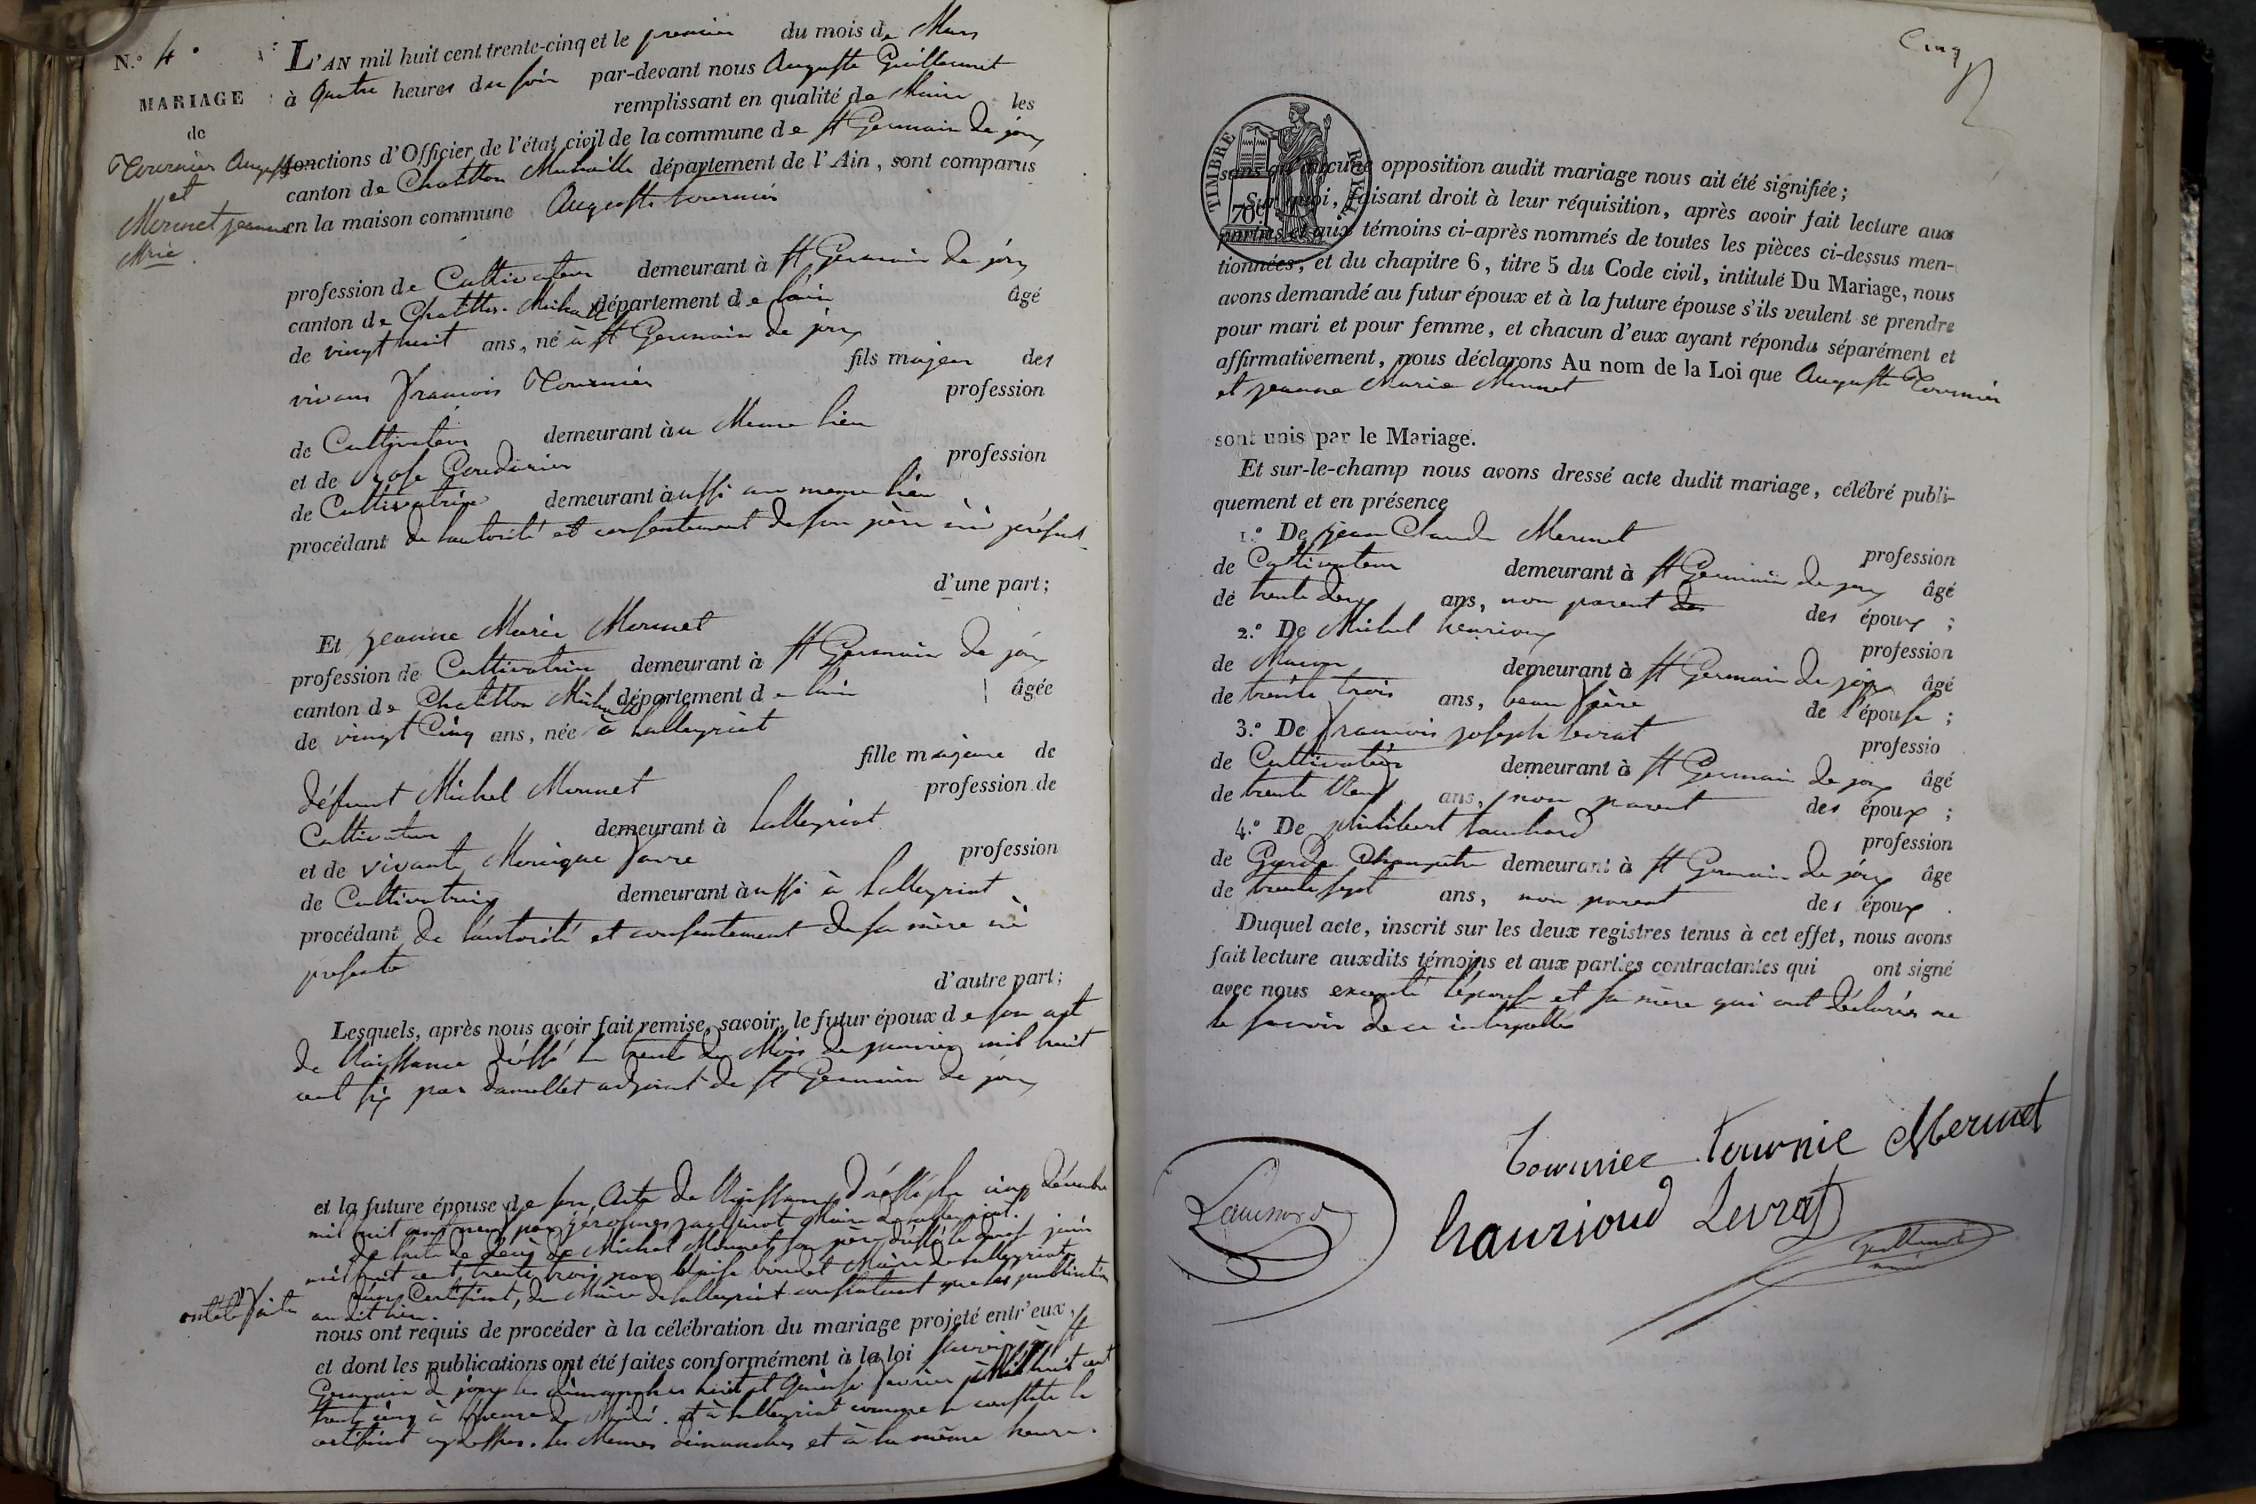 N.° 4.
MARIAGE
de
Tournier Auguste
et
Mermet jeanne
Mrie.
L'AN mil huit cent trente-cinq et le premier du mois de Mars
à quatre heures du soir par-devant nous Auguste Guillermet
remplissant en qualité de Maire les
fonctions d'Officier de l'état civil de la commune de st Germain de joux
canton de Chatillon Michaille département de l'Ain, sont comparus
en la maison commune Auguste tournier
profession de Cultivateur demeurant à st Germain de joux
canton de Chatillon Michaille département de l'ain âgé
de vingt huit ans, né à st Germain de joux
fils majeur des
vivans françois Tournier profession
de Cultivateur demeurant à u Meme lieu
et de Rose Coudurier profession
de Cultivatrice demeurant à ussi au meme lieu
procédant de lautorité et consentement de son père ici présent
d'une part;
Et jeanne Marie Mermet
profession de Cultivatrice demeurant à st Germain de joux
canton de Chatillon Michaille département de lain âgée
de vingt Cinq ans, née à lalleyriat
fille majeure de
défunt Michel Mermet profession de
Cultivateur demeurant à lalleyriat
et de vivante Monique favre profession
de Cultivatrice demeurant à ussi à lalleyriat
procédant de lautorité et consentement de sa mère ici
presente
d'autre part;
Lesquels, après nous avoir fait remise, savoir, le futur époux de son act
de Naissance dréssé le trente du Mois de janvier mil huit
cent six par adjoint de st Germain de joux
et la future épouse de son Acte de Naissance dréssé le cinq décembre
mil huit cent neuf par Maire de lalleyriat.
de lacte de décès de Michel Mermet son père dréssé le juin
mil huit cent trente trois par blaise Maire de lalleyriat
Certificat du Maire de lalleyriat constatant que les publication
ont été faites au dit lieu.
nous ont requis de procéder à la célébration du mariage projeté entr'eux,
et dont les publications ont été faites conformément à la loi savoir à st
Germain de joux les dimanches huit et quinze fevrier Mil huit cent
trente cinq à l'heure de Midi. et à lalleyriat comme le constate le
certificat cy dessus. les Memes dimanches et à la même heure.
Cinq
TIMBRE ROYAL
70c
sans qu'aucune opposition audit mariage nous ait été signifiée;
Sur quoi, faisant droit à leur réquisition, après avoir fait lecture aux
parties et aux témoins ci-après nommés de toutes les pièces ci-dessus men-
tionnées, et du chapitre 6, titre 5 du Code civil, intitulé Du Mariage, nous
avons demandé au futur époux et à la future épouse s'ils veulent se prendre
pour mari et pour femme, et chacun d'eux ayant répondu séparément et
affirmativement, nous déclarons Au nom de la Loi que Auguste Tournier
et jeanne Marie Mermet
sont unis par le Mariage.
Et sur-le-champ nous avons dressé acte dudit mariage, célébré publi-
quement et en présence
1.° De jean Claude Mermet profession
de Cultivateur demeurant à st Germain de joux âgé
de trente deux ans, non parent des des époux;
2.° De Michel henrioux profession
de Macon demeurant à st Germain de joux âgé
de trente trois ans, beau frère de l'épouse;
3.° De françois joseph levrat professio
de Cultivateur demeurant à st Germain de joux âgé
de trente Neuf ans, non parent des époux;
4.° De philibert profession
de Garde Champetre demeurant à st Germain de joux âge
de trente sept ans, non parent des époux.
Duquel acte, inscrit sur les deux registres tenus à cet effet, nous avons
fait lecture auxdits témoins et aux parties contractantes qui ont signé
avec nous excepté l'épouse et sa mère qui ont déclarés ne
le savoir de ce interpellés
Tournier tournie Mermet
hanrioud Levrat